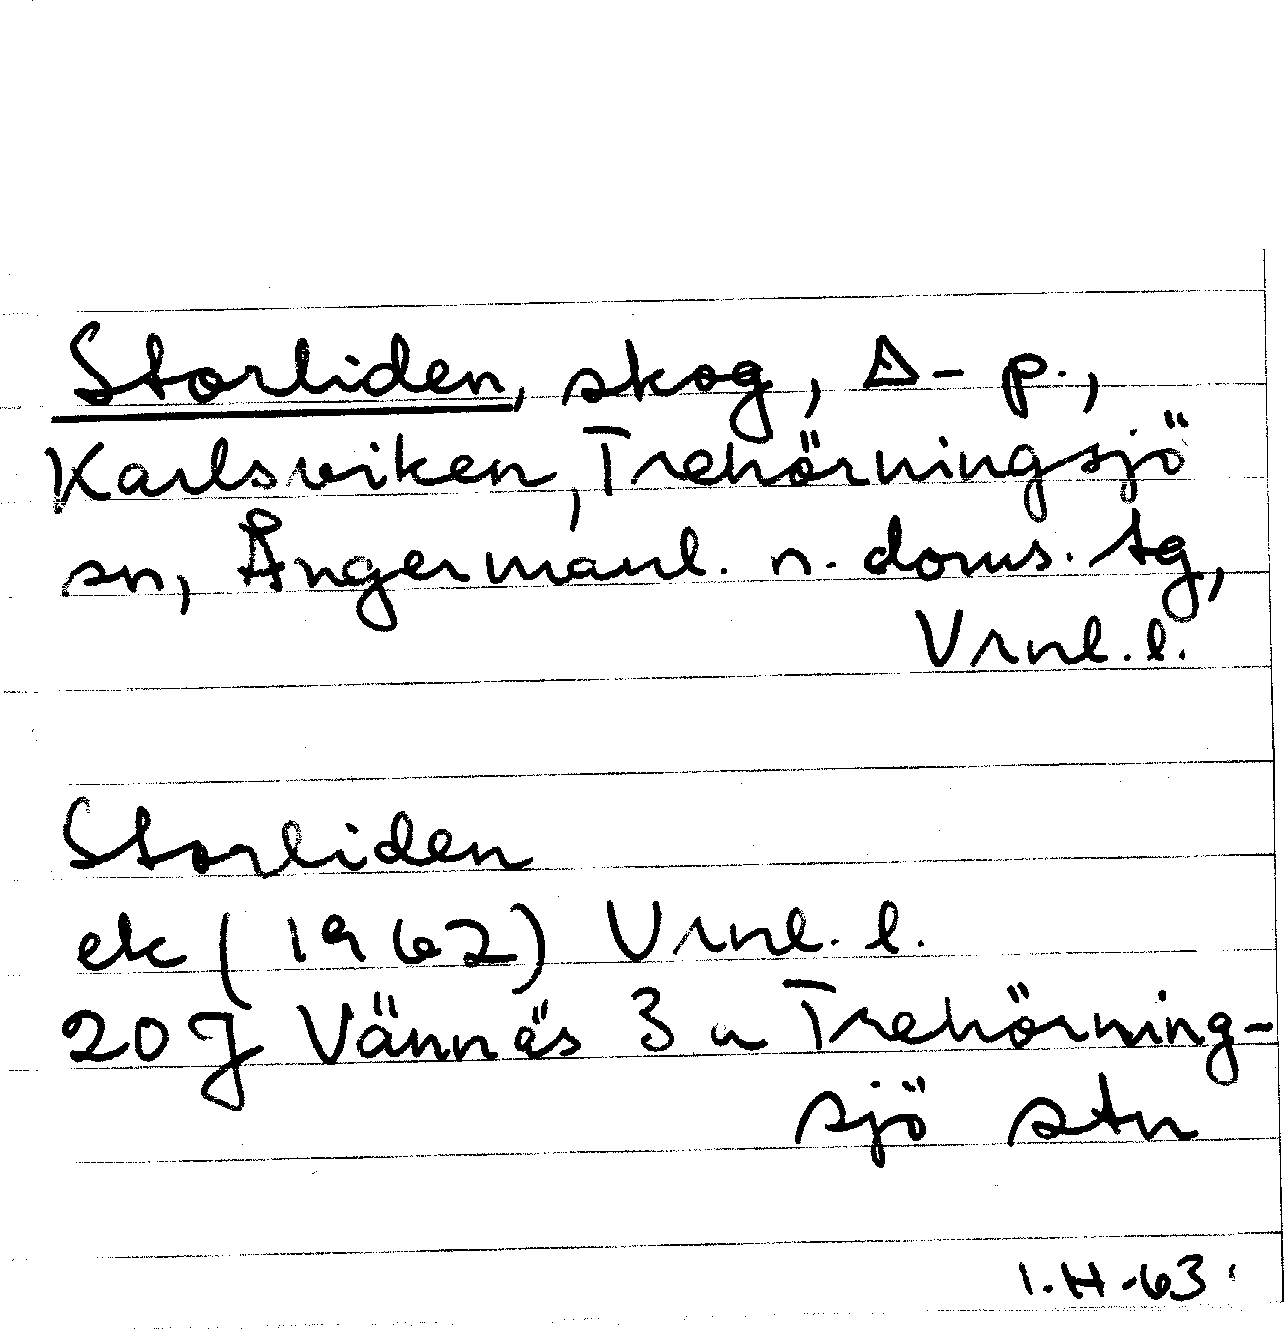 Storliden, skog, Δ-p.,
Karlsviken, Trehörningsjö
sn, Ångermanl. n. doms. tg,
Vrnl. l.
Storliden
ek (1962) Vrnl. l.
20 J Vännäs 3 a Trehörning-
sjö stn
I.H-63.